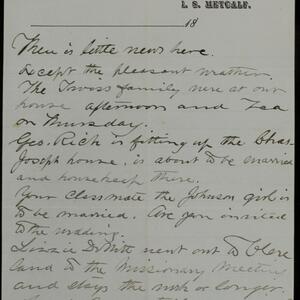 L. S. METCALF.
18
There is little news here.
Except the pleasant weather.
The family were at our
house afternoon and Tea
on Thursday.
Geo. Rich is fitting up the Chas.
Joseph house. is about to be married
and housekeep there.
Your classmate the Johnson girl is
to be married. Are you invited
to the wedding.
Lizzie DeWitt went out to Cleve
land to the Missionary Meeting
and stays the week or longer.